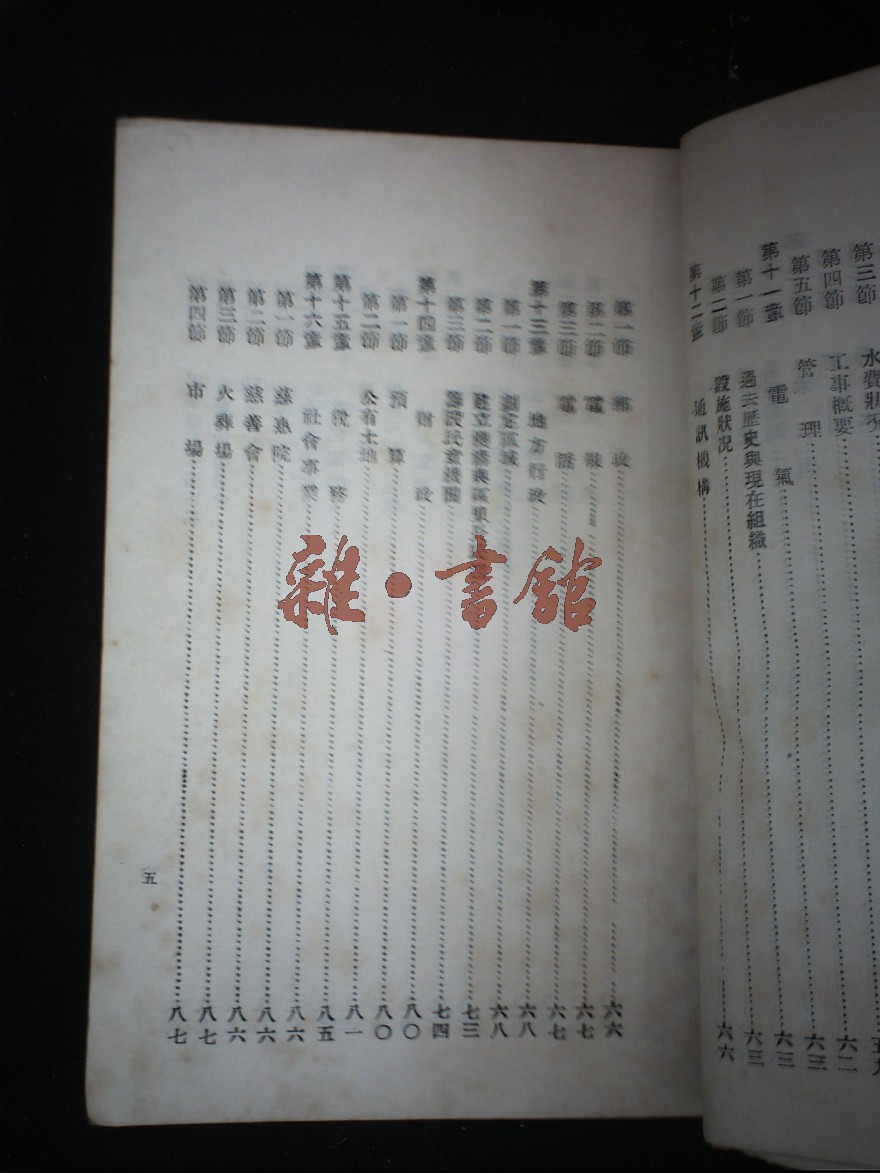 第三節 水費狀況 五九
第四節 工事概要 六二
第五節 管理 六三
第十一章 電氣 六三
第一節 過去歷史與現在組織 六三
第二節 設施狀況 六六
第十二章 通訊機構
第一節 郵政 六六
第二節 電報 六七
第三節 電話 六七
第十三章 地方行政 六八
第一節 劃定區域 六八
第二節 七三
第三節 民意機關 七四
第十四章 財政 八〇
第一節 預算 八〇
第二節 公有土地 八一
第十五章 役務 八五
第十六章 社會事業 八六
第一節 慈惠院 八六
第二節 慈善會 八六
第三節 火葬場 八七
第四節 市場 八七
五
雜·書館